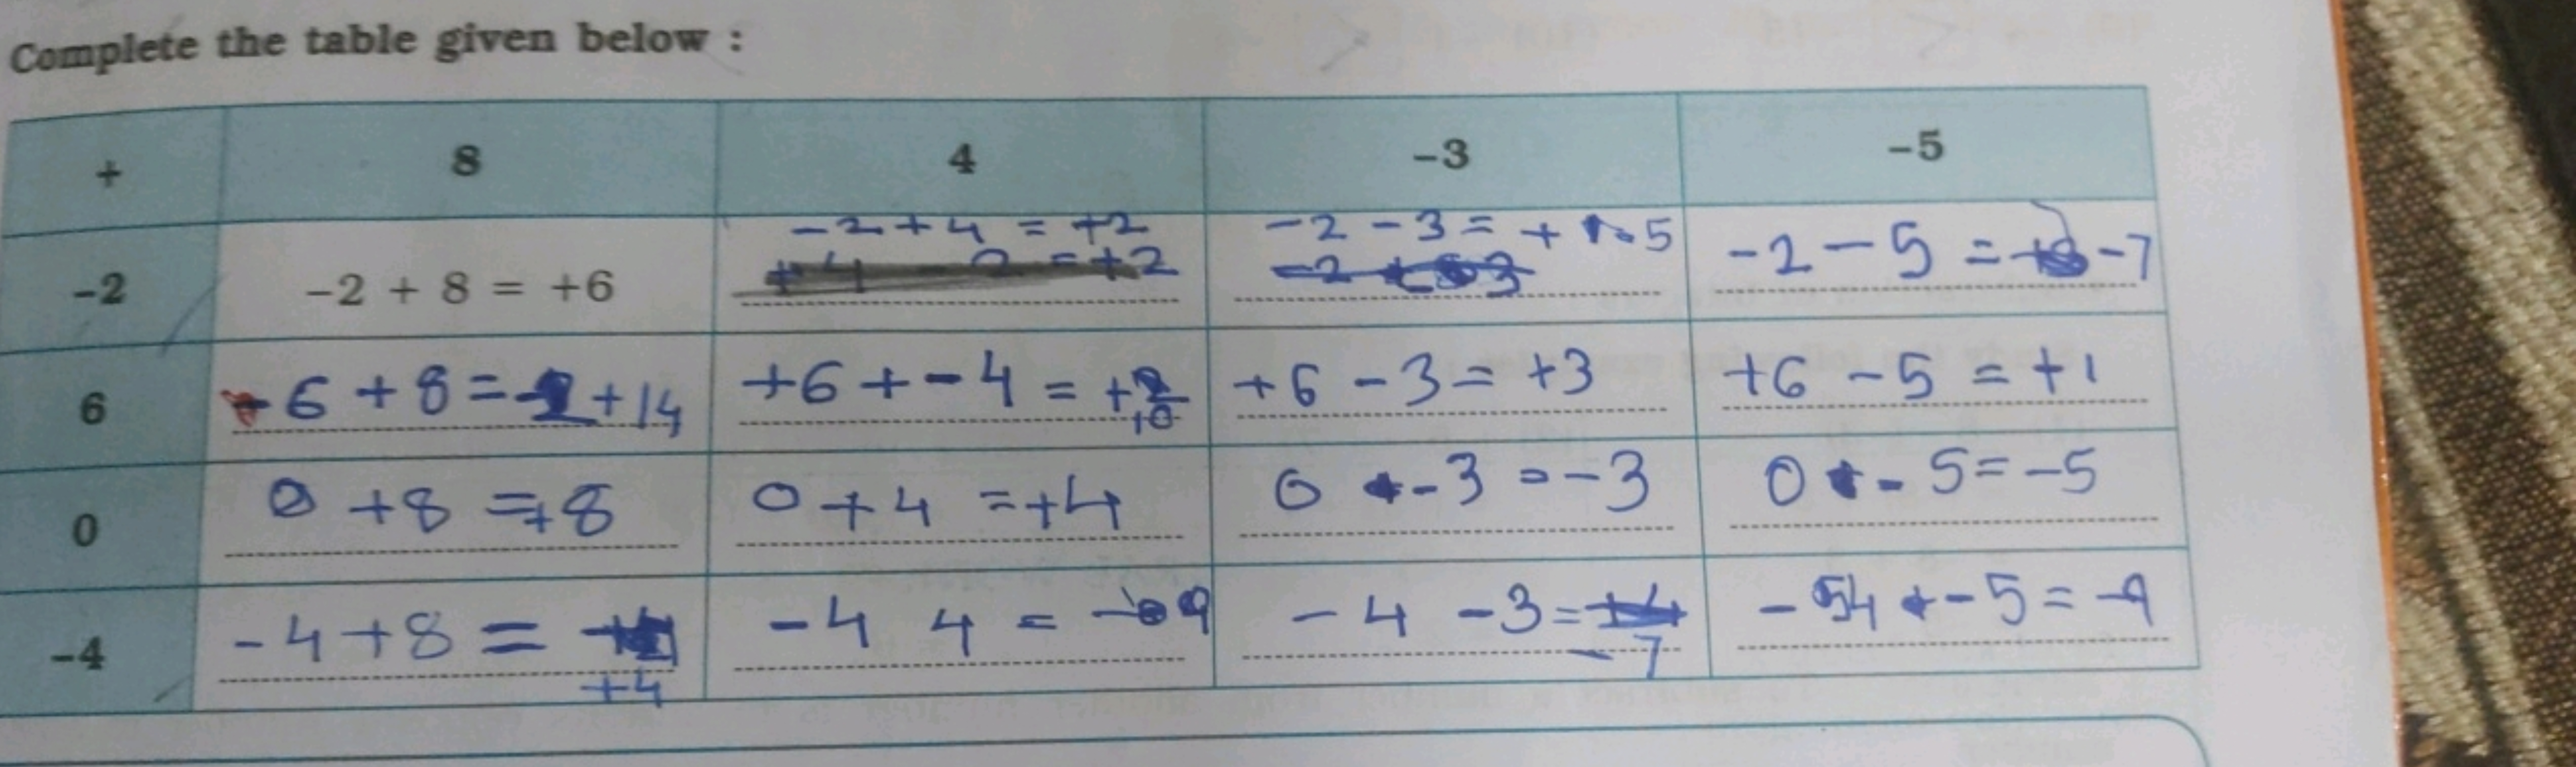 Complete the table given below :
+ 8 4 -3 -5
-2 -2 + 8 = +6 -2+4 = +2 -2 -3 = + -5 -2 - 5 = -7
+4 - 2 = +2
6 6 + 8 = +14 +6 + - 4 = +10 +6 - 3 = +3 +6 - 5 = +1
0 0 +8 = +8 0 + 4 = +4 0 - 3 = -3 0 - 5 = -5
-4 -4+8 = +4 -4 4 = -4 -3 = -7 -4 - 5 = -9